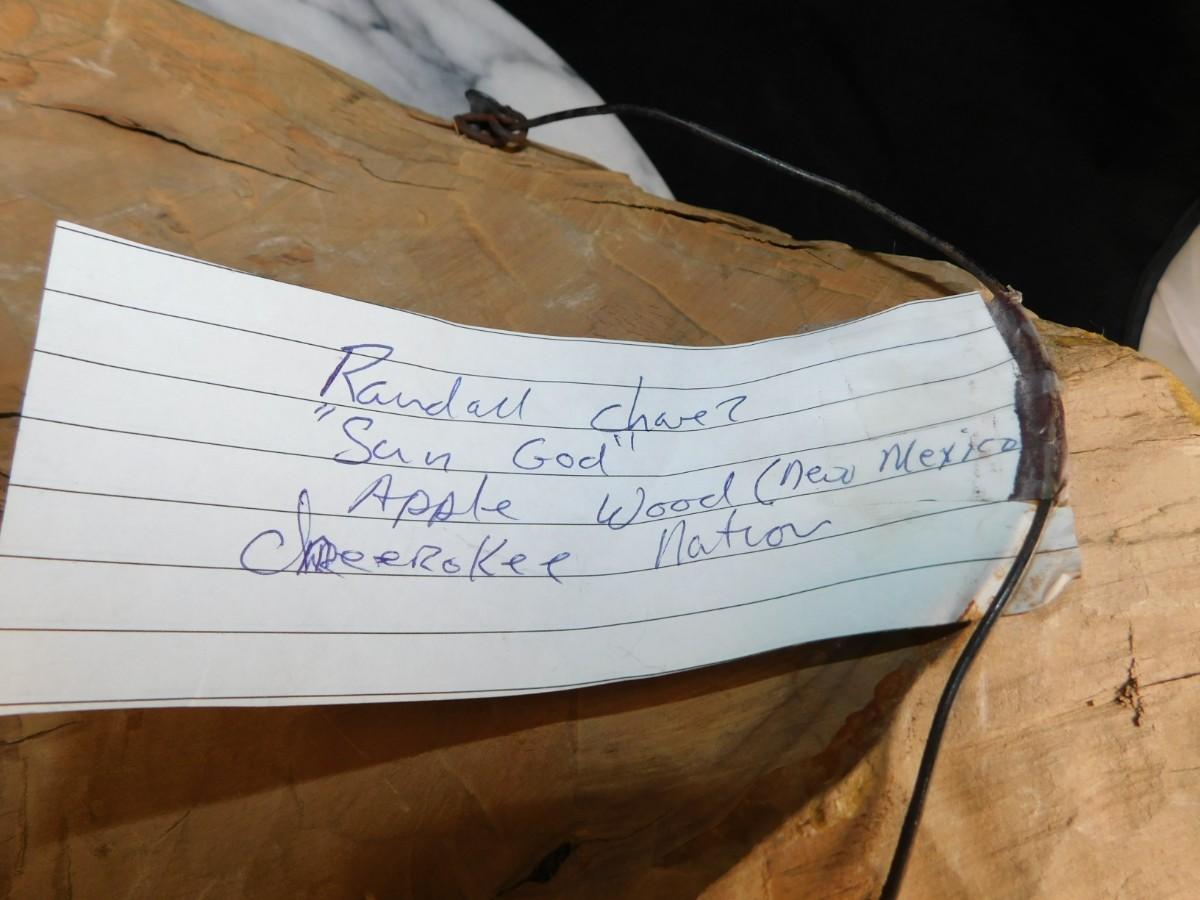 Randall Chavez
"Sun God"
Apple Wood (New Mexico
Cheerokee Nation